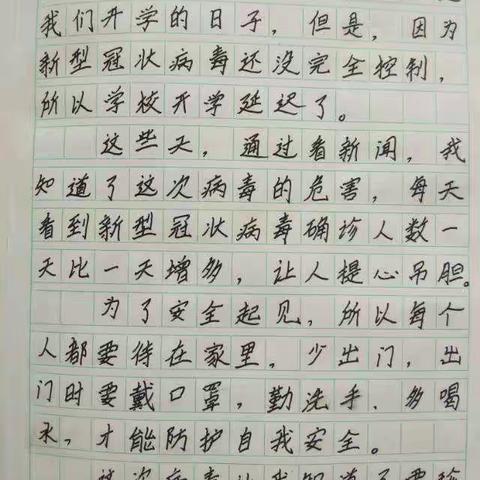 我们开学的日子，但是，因为
新型冠状病毒还没完全控制，
所以学校开学延迟了。
这些天，通过看新闻，我
知道了这次病毒的危害，每天
看到新型冠状病毒确诊人数一
天比一天增多，让人提心吊胆。
为了安全起见，所以每个
人都要待在家里，少出门，出
门时要戴口罩，勤洗手、多喝
水，才能防护自我安全。
这次病毒让我知道了要珍